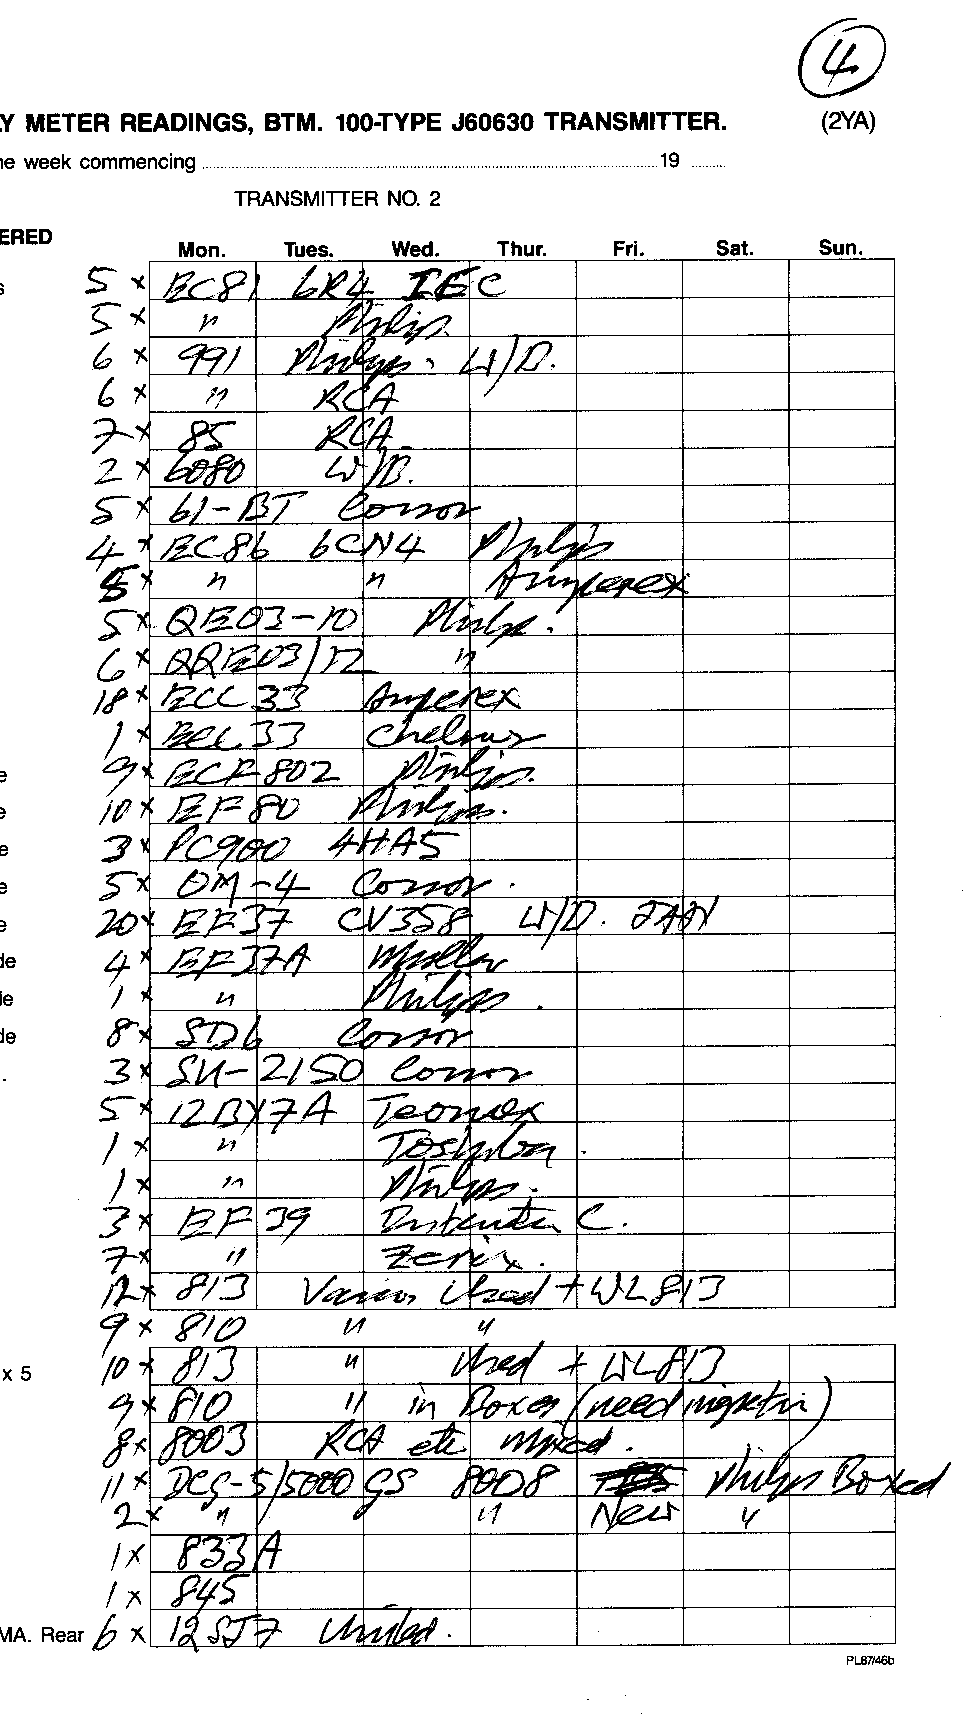 4
Y METER READINGS, BTM. 100-TYPE J60630 TRANSMITTER. (2YA)
ne week commencing 19
TRANSMITTER NO. 2
ERED
Mon. Tues. Wed. Thur. Fri. Sat. Sun.
s 5 x EC81 6R4 IEC
5 x " Philips.
6 x 991 Philips. W/D.
6 x " RCA
7 x 85 RCA
2 x 6080 W/B.
5 x 61-BT Cossor
4 x EC86 6CN4 Philips
5 x " " Amperex
5 x QE03-10 Philips.
6 x QQE03/12 "
18 x ECC33 Amperex
1 x ECC33 Chelmer
e 9 x ECF802 Philips.
e 10 x EF80 Philips.
e 3 x PC900 4HA5
e 5 x OM-4 Cossor.
e 20 x EF37 CV358 W/D. JAAN
de 4 x EF37A Mullar
ie 1 x " Philips.
de 8 x SD6 Cossor
. 3 x SU-2150 Cossor
5 x 12BY7A Teonex
1 x " Toshiba.
1 x " Philips.
3 x EF39 C.
7 x " Zenix.
12 x 813 Various Used + WL813
9 x 810 " "
x 5 10 x 813 " Used + WL813
9 x 810 " in Boxes (need )
8 x 8003 RCA etc mixed.
11 x DCG-5/5000 GS 8008 Philips Boxed
2 x " " New "
1 x 833A
1 x 845
MA. Rear 6 x 12SJ7 United.
PL87/46b